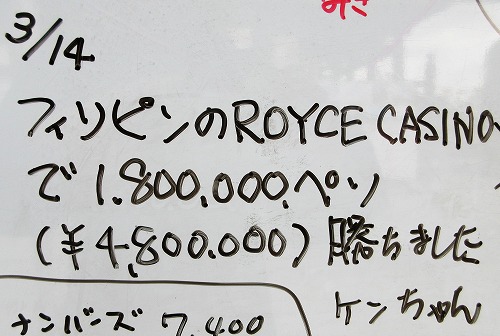 3/14
フィリピンのROYCE CASINO
で 1,800,000ペソ
(¥4,800,000) 勝ちました
ケンちゃん
ナンバーズ 7,400